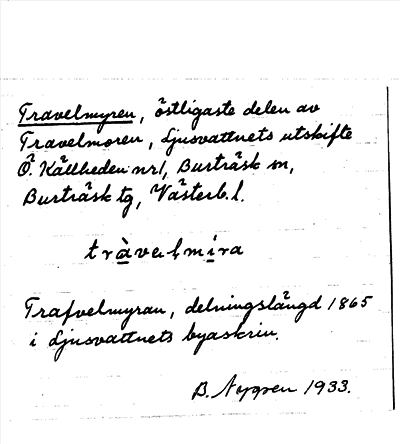 Travelmyren, östligaste delen av
Travelmoren, Ljusvattnets utskifte
Ö. Källheden nr 1, Burträsk sn,
Burträsk tg, Västerb. l.
tràvalmira
Trafvelmyran, delningslängd 1865
i Ljusvattnets byaskrin.
B. Nygren 1933.